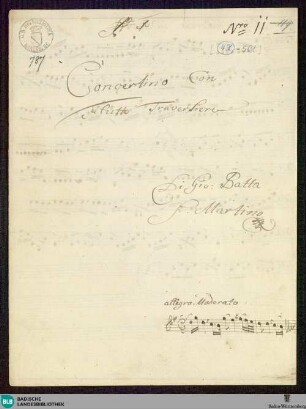 Nro 11
787
Concertino Con
Flauto Traversiere
Di Gio: Batta
S. Martino
allegro Moderato
BLB BADISCHE
LANDESBIBLIOTHEK
Baden-Württemberg